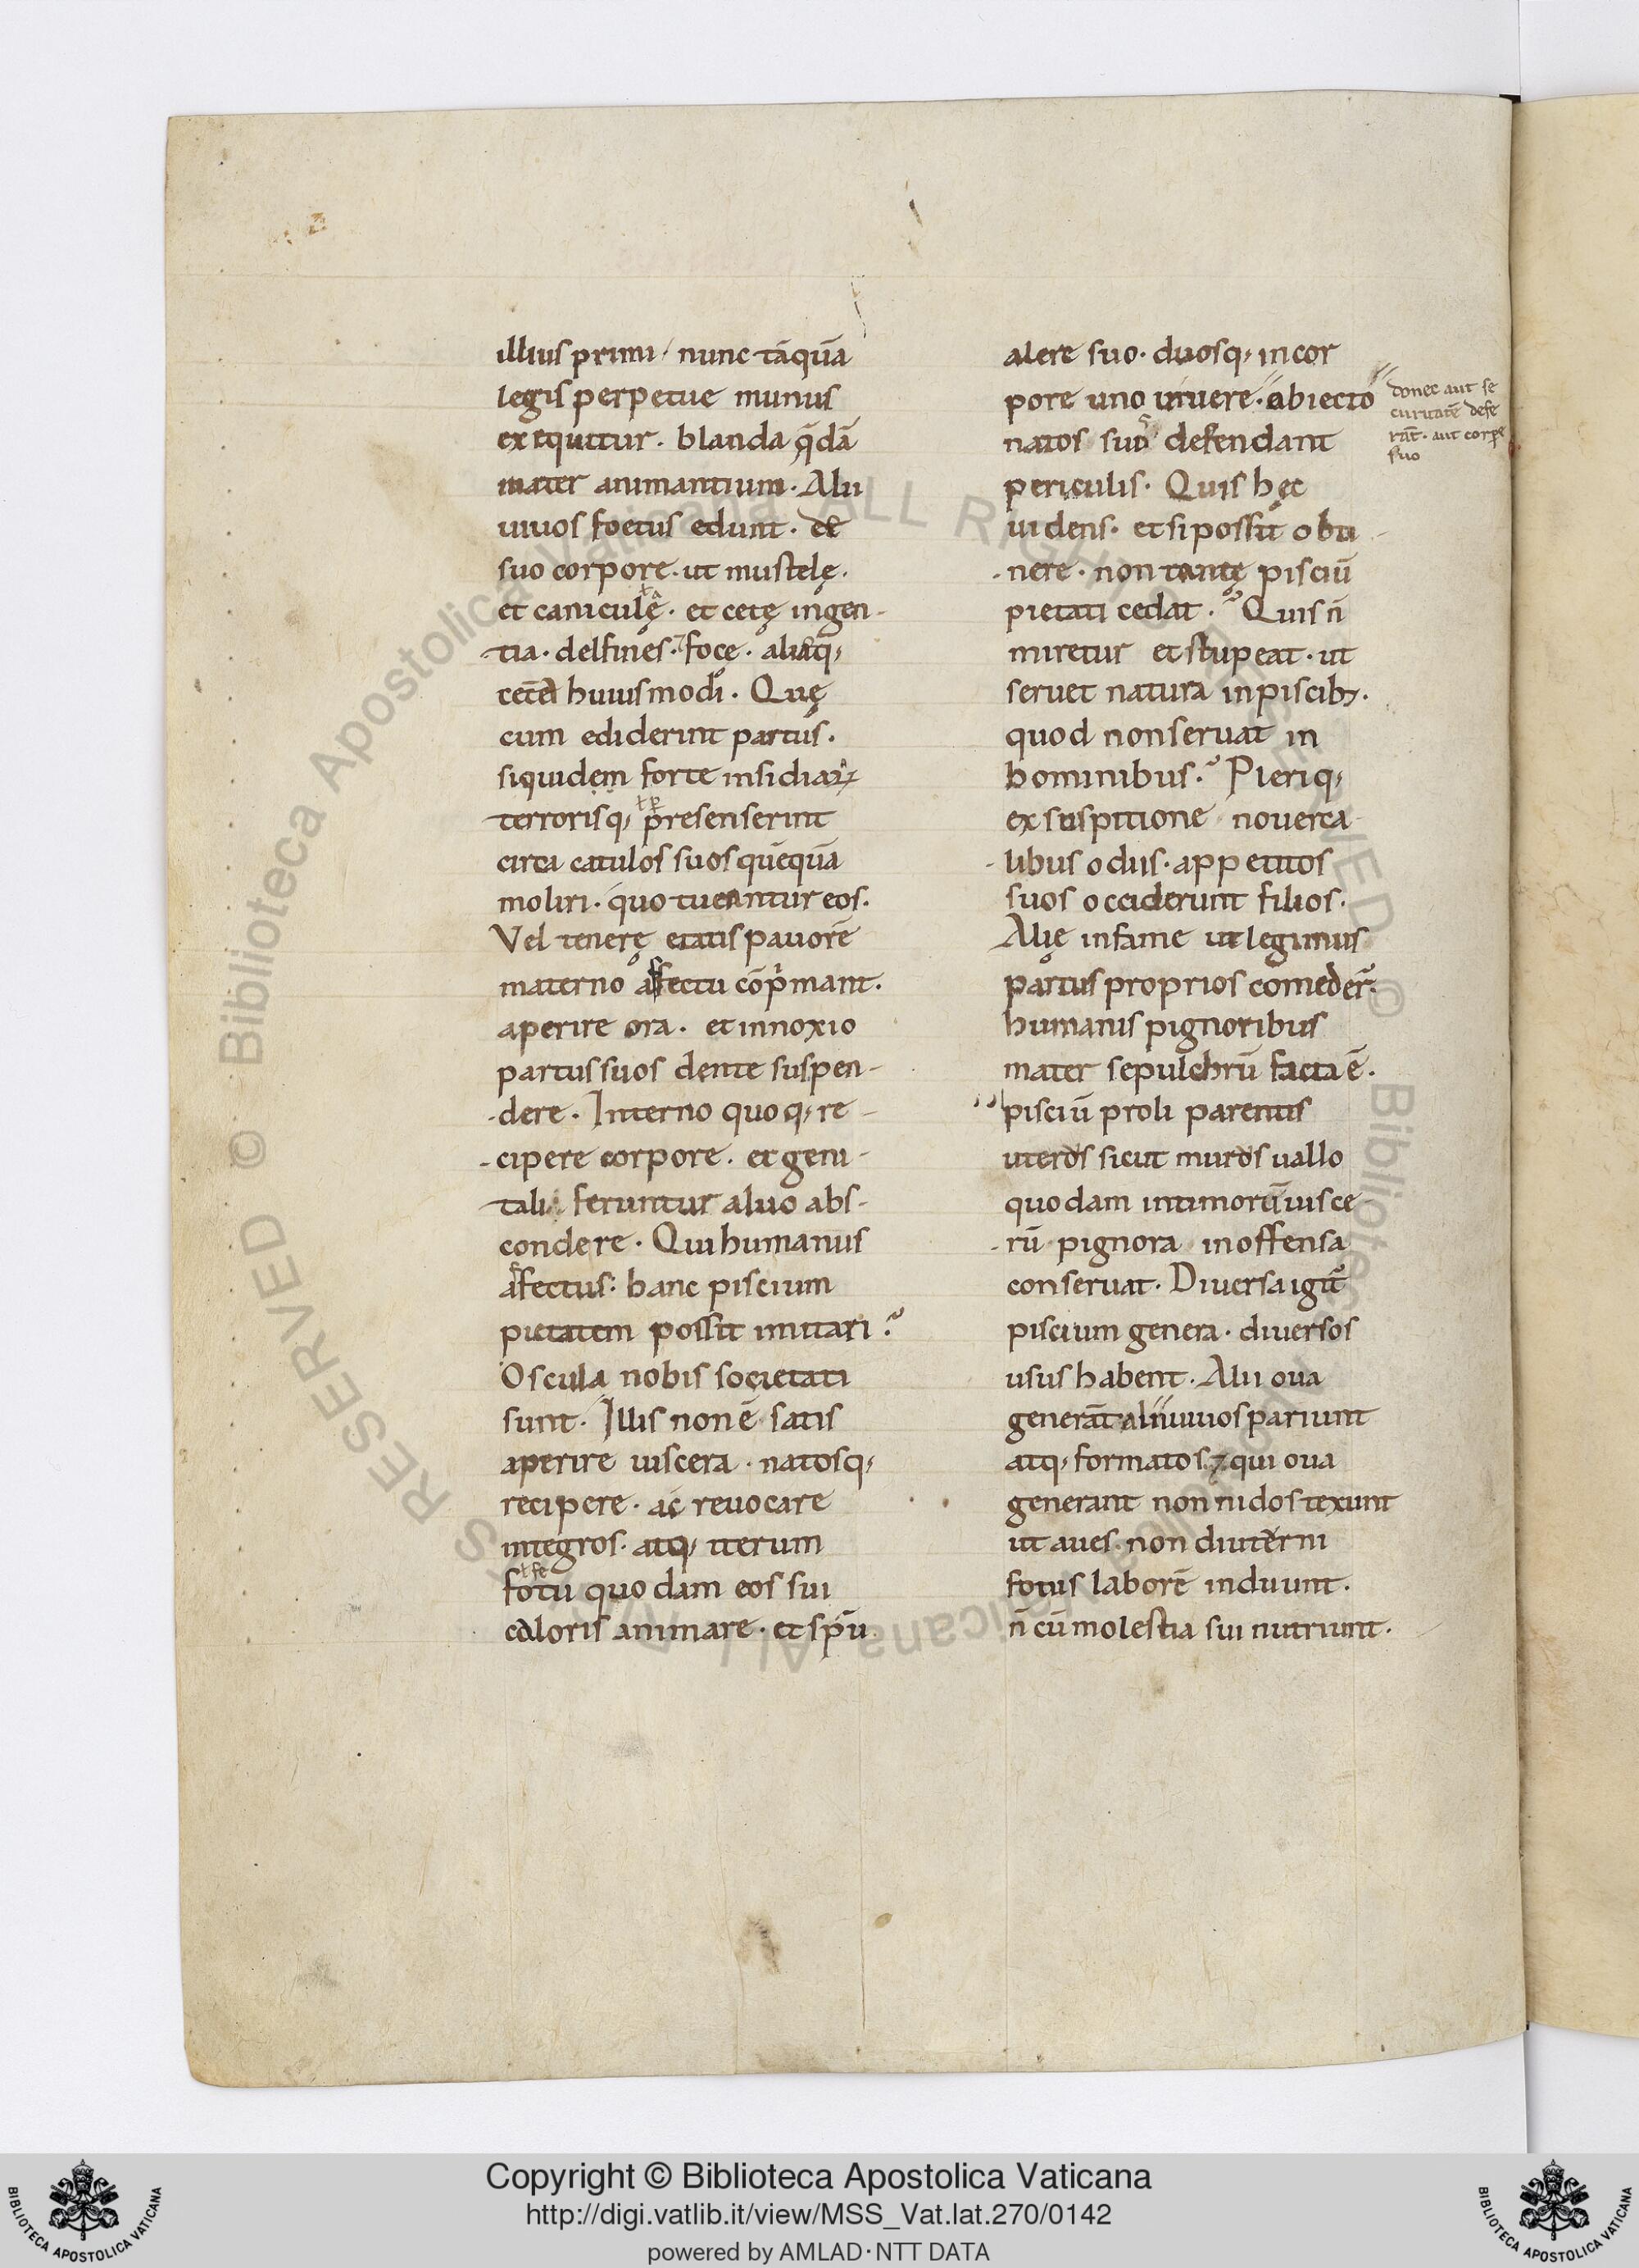 illius primi · nunc tāquā
legis perpetue munus
exequitur · blanda q̄dā
mater animantium · Alii
uiuos foetus edunt · de
suo corpore · ut mustelę ·
et caniculę · et cetę ingen-
tia · delfines · ⁊ foce · aliaq;
huiusmodi · Quę
cum ediderint partus ·
siquidem forte insidiarꝝ
terrorisq; presenserint
circa catulos suos quēquā
moliri · quo tueantur eos ·
Vel tenerę etatis pauorē
materno affectu cōprimant ·
aperire ora · et innoxio
partus suos dente suspen-
dere · Interno quoq; re-
cipere corpore · et geni-
tali feruntur aluo abs-
condere · Qui humanus
affectus · hanc piscium
pietatem possit imitari ?
Oscula nobis societati
sunt · Illis non ē satis
aperire uiscera · natosq;
recipere · ac reuocare
integros · atq; iterum
fotu quodam eos sui
caloris animare · et spū
alere suo · duosq; in cor
pore uno uiuere · abiecto
natos suo defendant
periculis · Quis hęc
uidens · et si possit obti-
nere · non tantę pisciū
pietati cedat ? Quis n̄
miretur et stupeat · ut
seruet natura in piscib; ·
quod non seruat in
hominibus ? Pleriq;
ex suspitione nouerca-
libus odiis · appetitos
suos occiderunt filios ·
Alię in fame ut legimus
partus proprios comeder̄ ·
humanis pignoribus
mater sepulchrū facta ē ·
pisciū proli parentis
uteros sicut muros uallo
quodam intimorū uisce-
rū pignora inoffensa
conseruat · Diuersa igit̄
piscium genera · diuersos
usus habent · Alii oua
generāt alii uiuos pariunt
atq; formatos · ⁊ qui oua
generant non nidos texunt
ut aues · non diuterni
fotus laborē induunt ·
n̄ cū molestia sui nutriunt ·
donec aut se
curitatē defe
rāt · aut corpe
suo
© Biblioteca Apostolica Vaticana ALL RIGHTS RESERVED © Biblioteca Apostolica Vaticana ALL RIGHTS RESERVED
BIBLIOTECA APOSTOLICA VATICANA
Copyright © Biblioteca Apostolica Vaticana
http://digi.vatlib.it/view/MSS_Vat.lat.270/0142
powered by AMLAD · NTT DATA
BIBLIOTECA APOSTOLICA VATICANA